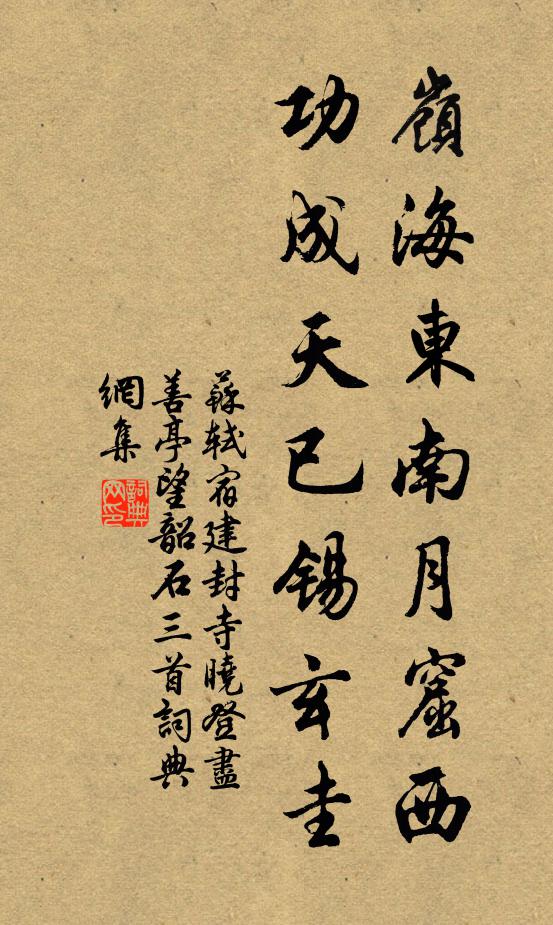 嶺海東南月窟西
功成天已錫玄圭
蘇軾宿建封寺曉登盡
善亭望韶石三首詞典
網集
詞典網印